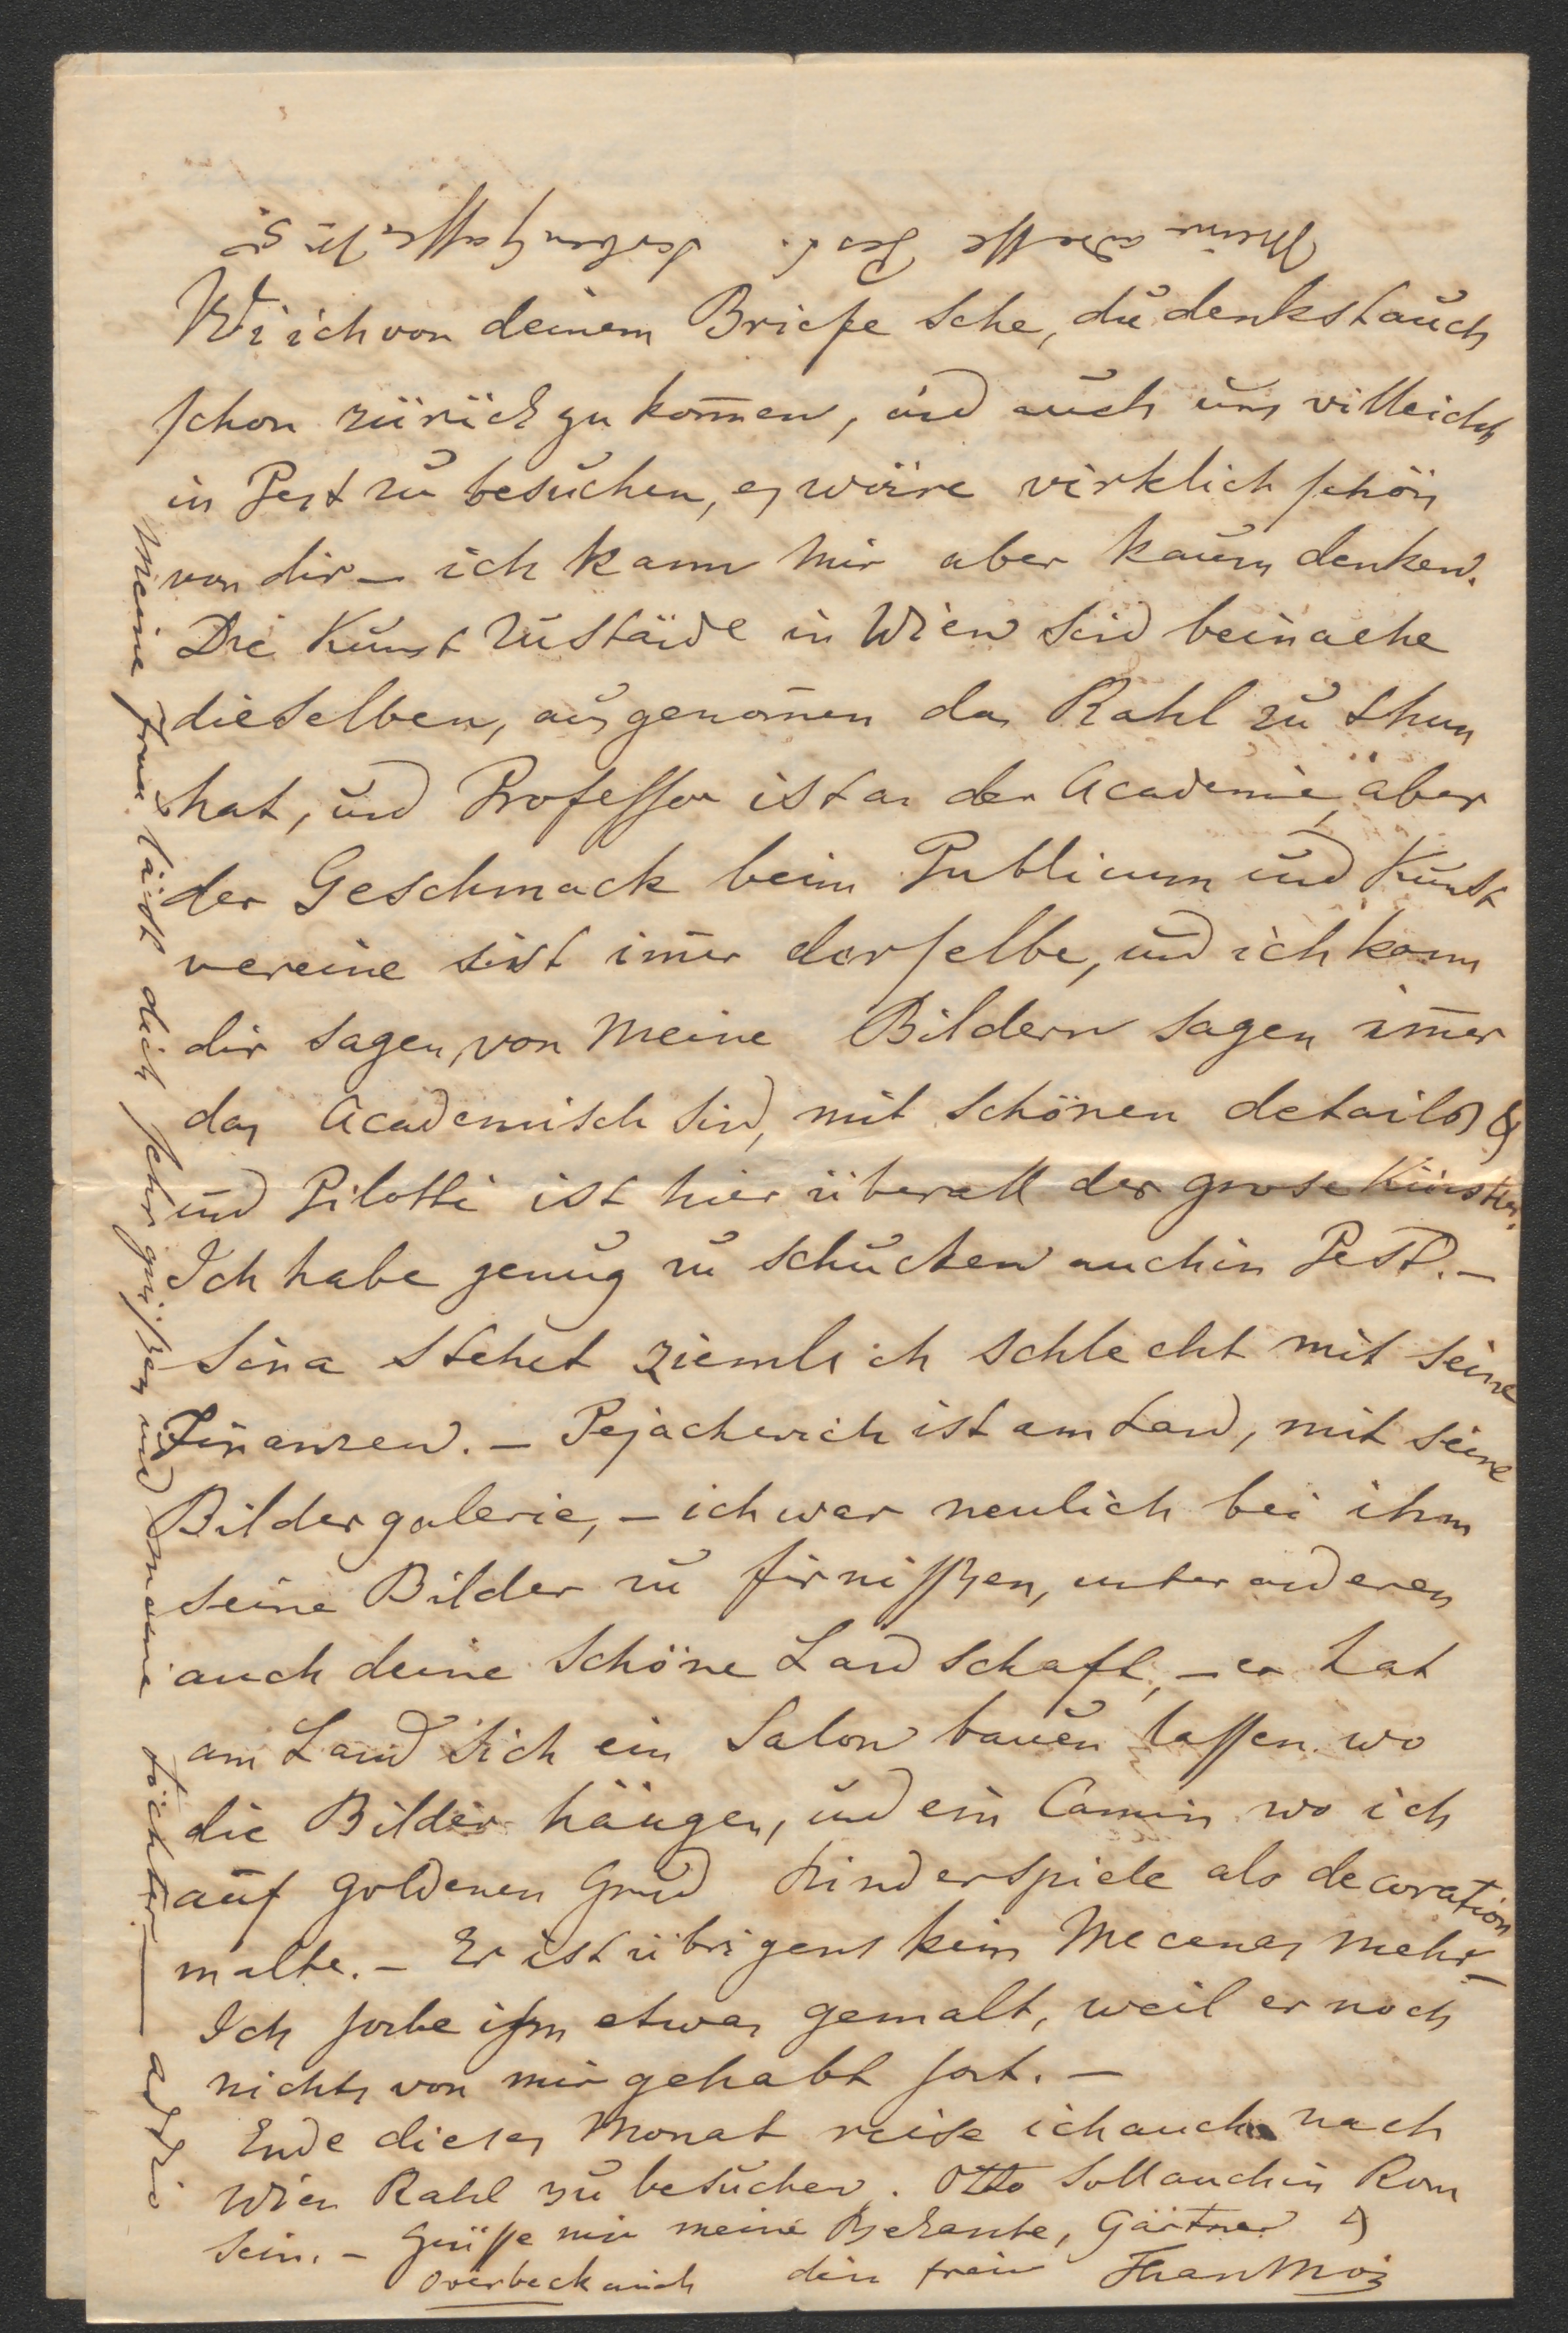 Meine adresse Pest. 
Wi ich von deinem Briefe sehe, du denkst auch
schon zürück zu kom̄en, und auch uns villeicht
in Pest zu besuchen, es wäre virklich schön
von dir – ich kann mir aber kaum denken.
Die Kunst zustände in Wien sind beinaehe
dieselben, ausgenom̄en das Rahl zu thun
hat, und Professor ist an der Academie, aber
der Geschmack beim Publicum und Kunst
vereine ist im̄er derselbe, und ich kann
dir sagen, von meine Bildern sagen im̄er
das Academisch sind, mit schönen details &
und Pilotti ist hier überall der grose Künstler.
Ich habe genug zu schucken auch in Pest. –
Sina stehet ziemlich schlecht mit seine
Finanzen. – Pejachevich ist am Land, mit seine
Bildergalerie, – ich war neulich bei ihm
seine Bilder zu firnissen, unter anderen
auch deine schöne Landschaft, – er hat
am Land sich ein Salon bauen lassen wo
die Bilder hängen, und ein Camin wo ich
auf goldenen Grund Kinderspiele als decoration
malte. – Er ist übrigens kein Mecenas mehr –
Ich habe ihm etwas gemalt, weil er noch
nichts von mir gehabt hat. –
Ende dieses Monat reise ich auch nach
Wien Rahl zu besuchen. Otto soll auch in Rom
sein. – Grüsse mir meine Bekante, Gärtner &
Overbeck auch dein treuer Than Moȥ
Meine frau läst dich sehr grüßen und meine töchter — addio